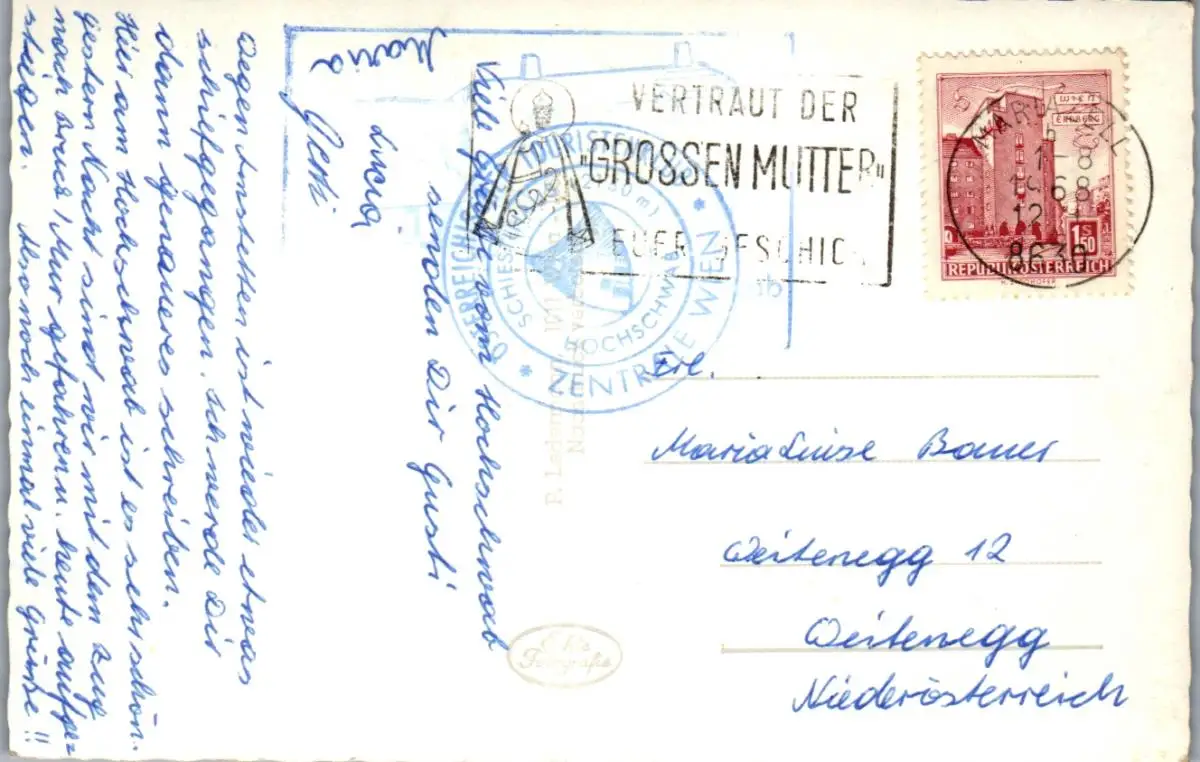 Viele Grüße vom Hochschwab
senden Dir Gusti
Lucia
Gerti
Maria
Wegen Amstetten ist wieder etwas
schiefgegangen. Ich werde Dir
dann genaueres schreiben.
Hier am Hochschwab ist es sehr schön.
gestern Nacht sind wir mit dem Zug
nach Bruck/Mur gefahren u. heute aufge-
stiegen. Nun noch einmal viele Grüße!!
VERTRAUT DER
„GROSSEN MUTTER"
EUER GESCHICK
MARIAZELL
1-8
1968
12
8630
WIEN
ERDBERG
1.50
S
REPUBLIK ÖSTERREICH
TOURISTENKLUB
ZENTRALE WIEN
HOCHSCHWAB
Frl.
Maria Luise Bauer
Weitenegg 12
Weitenegg
Niederösterreich